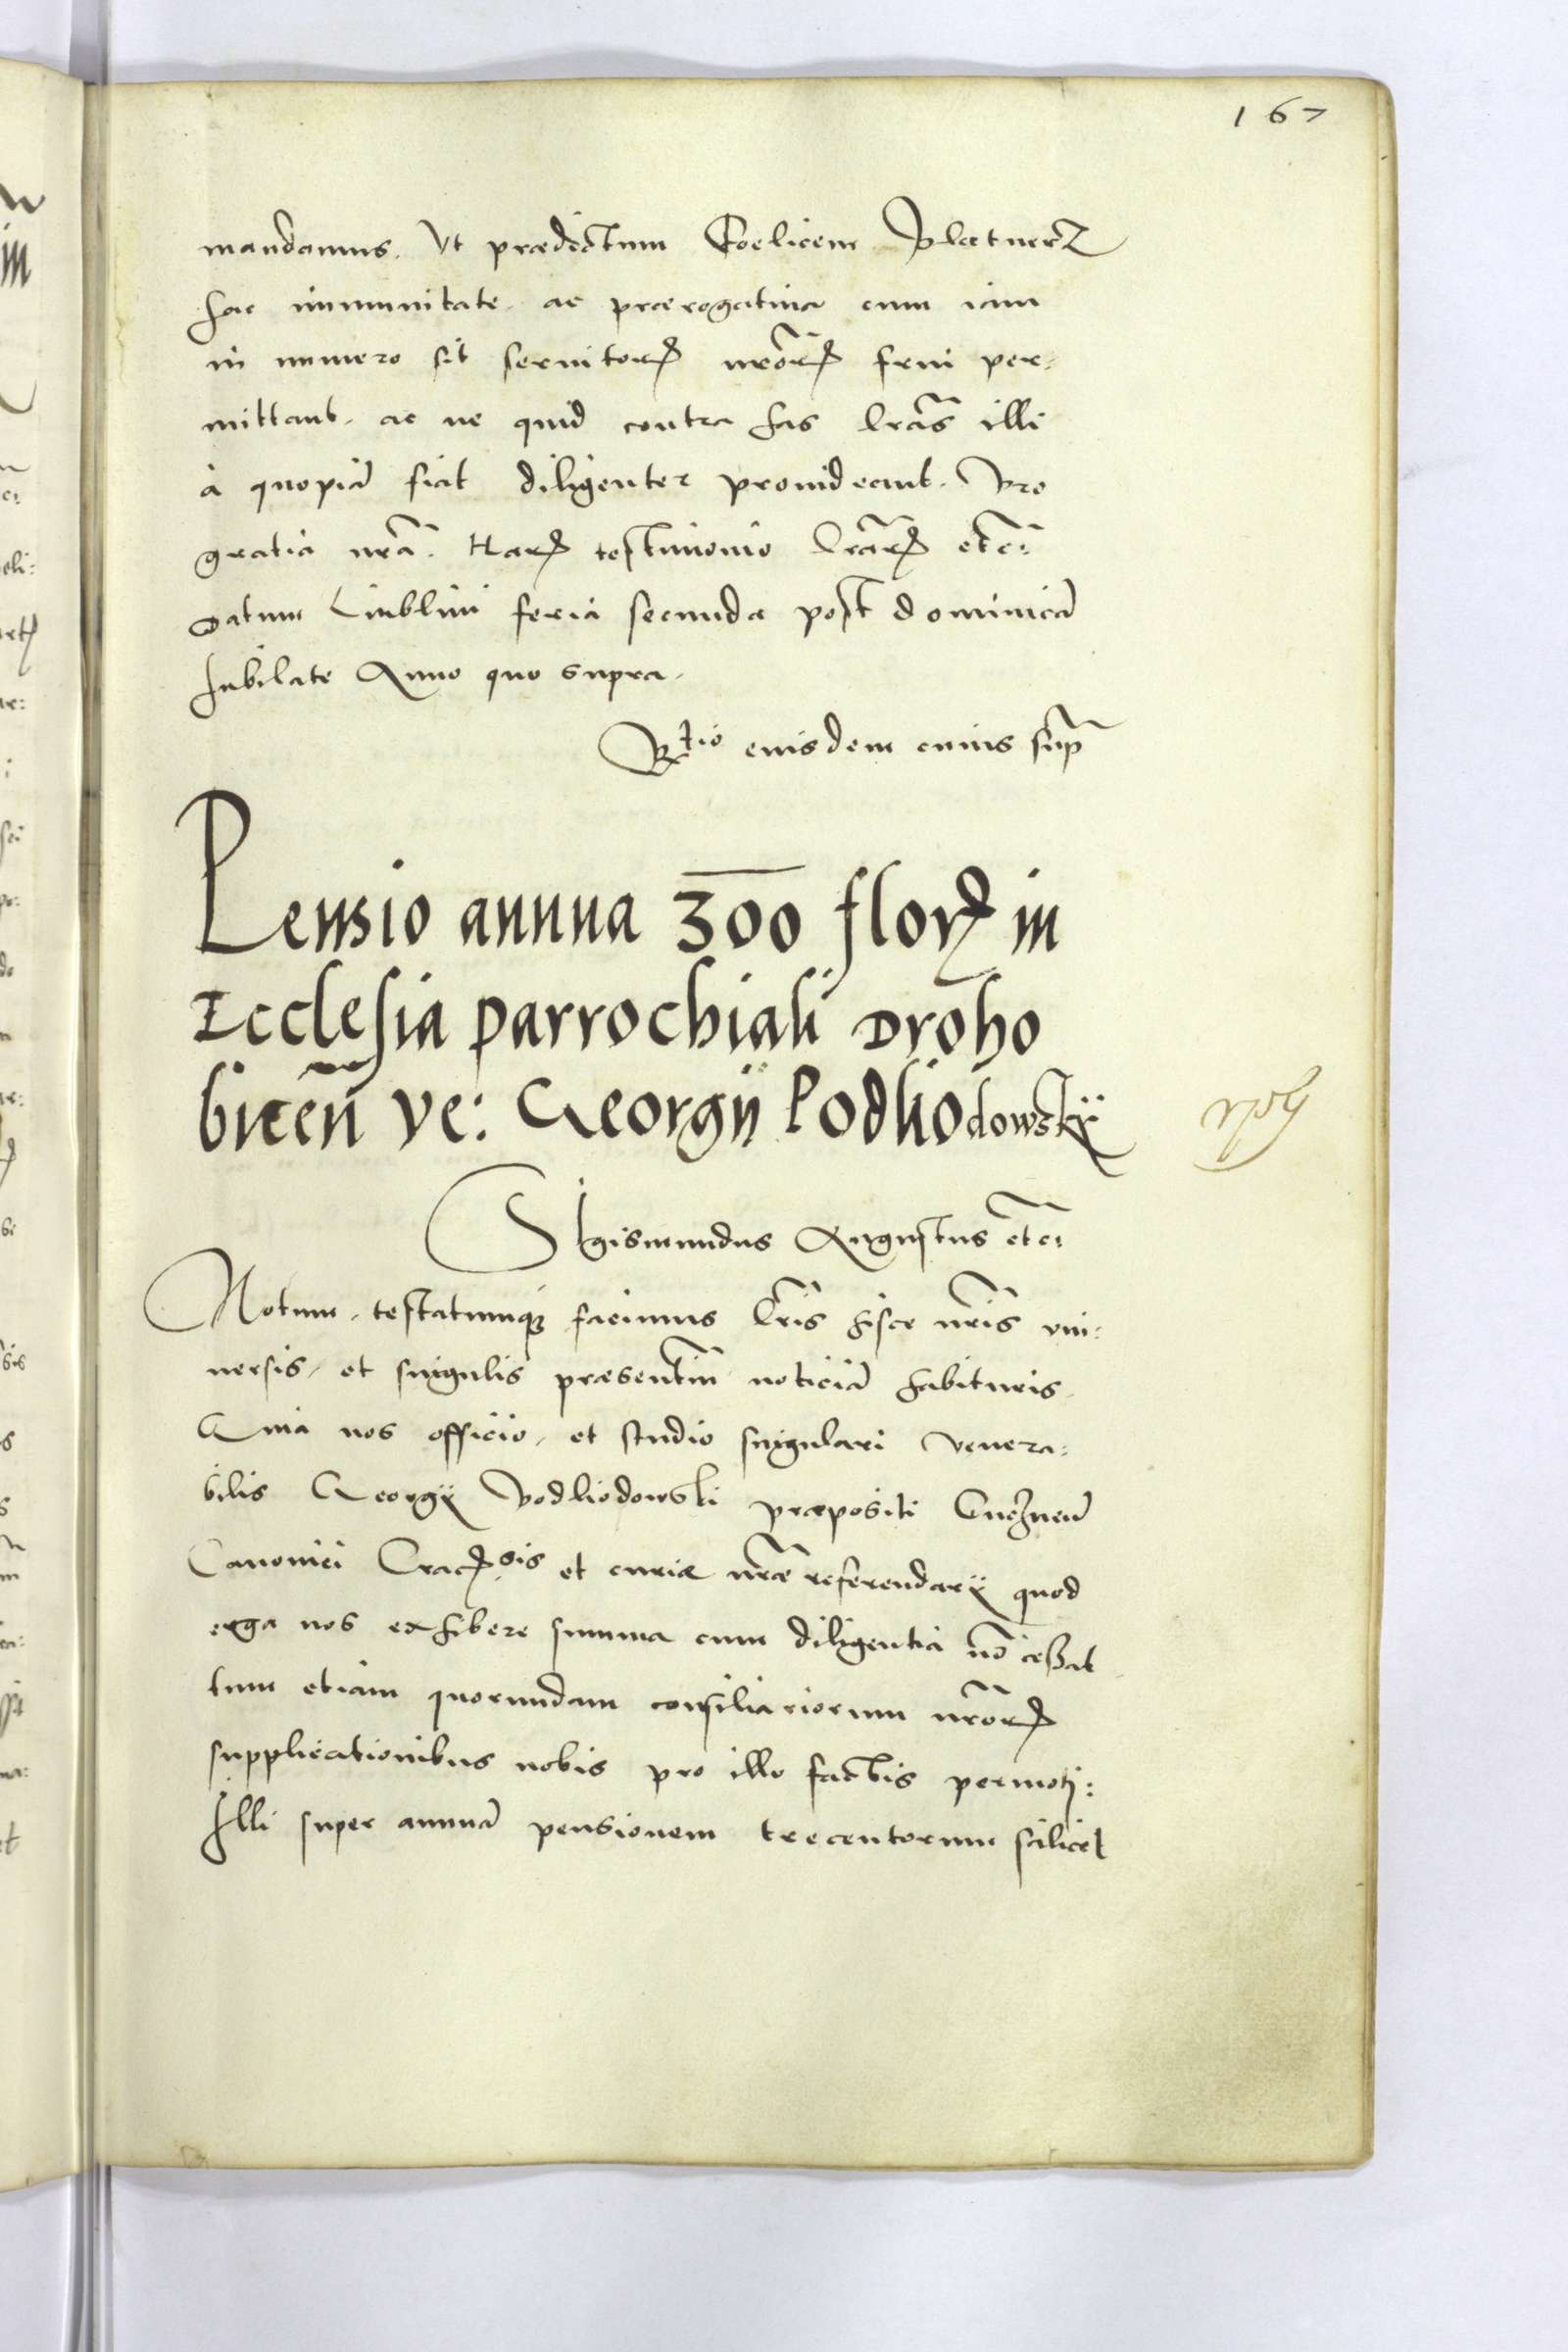 167
mandamus. Vt prædictum Foelicem Plætnerz
hac immunitate. ac prærogatiua cum iam
in numero sit seruitorꝝ nr̃orꝝ frui per-
mittant. ac ne quid contra has lr̃as illi
à quopiã fiat diligenter prouideant. Pro
gratia nr̃a. Harꝝ testimonio lr̃arꝝ etc̃:
Datum Liublini feria secunda post dominicã
Iubilate Anno quo supra.
Rtio eiusdem cuius supˀ
Pensio annua 300 florꝝ in
Ecclesia parrochiali Droho
biceñ ve: Georgij Podliodowskÿ
SIgismundus Augustus etc̃:
Notum. testatumqꝫ facimus lr̃is hisce nr̃is vni:
uersis, et singulis præsentiũ noticiã habituris.
Quia nos officio, et studio singulari venera:
bilis Georgÿ Podliodowski præpositi Gneznen̄
Canonici Cracꝝsis et curiæ nr̃æ referendarÿ quod
erga nos exhibere summa cum diligentia nõ cessat
tum etiam quorundam consiliariorum nr̃orꝝ
supplicationibus nobis pro illo factis permoti:
Illi super annuã pensionem trecentorum scilicet